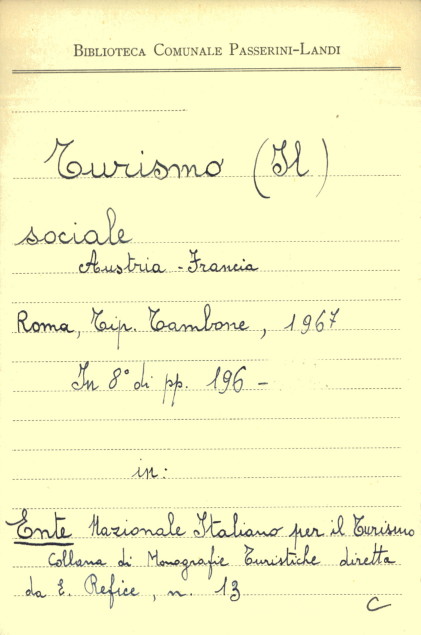 BIBLIOTECA COMUNALE PASSERINI-LANDI
Turismo (Il)
sociale
Austria - Francia
Roma, Tip. Tambone, 1967
In 8° di pp. 196 -
in:
Ente Nazionale Italiano per il Turismo
Collana di Monografie Turistiche diretta
da E. Refice, n. 13
C